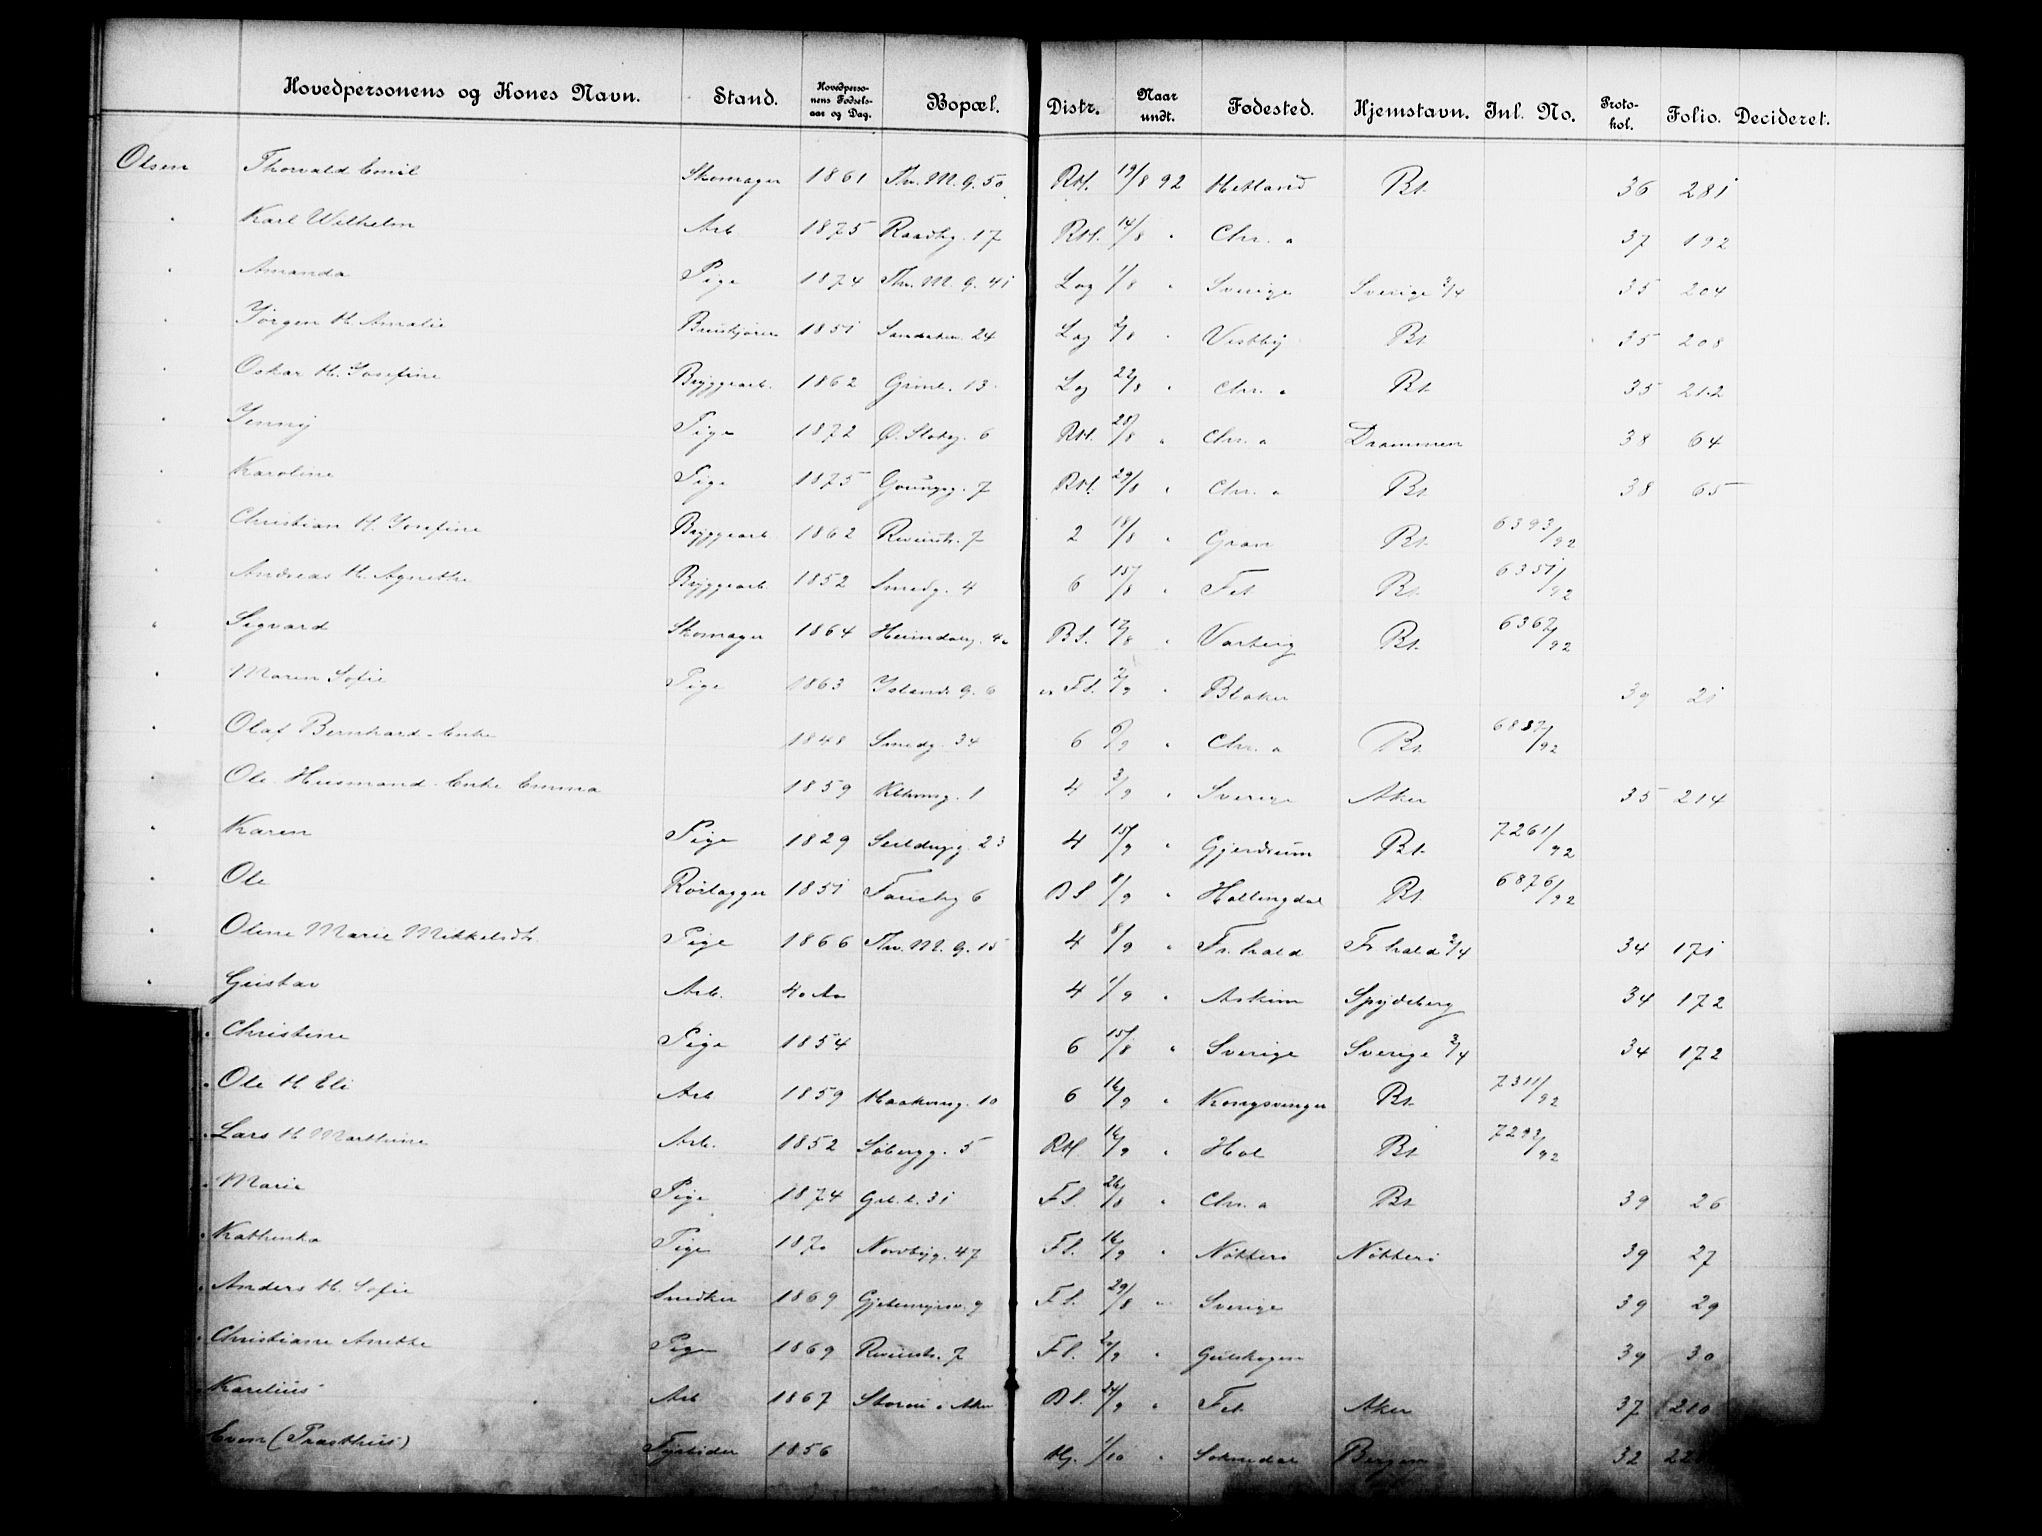 Hovedpersonens og Kones Navn. Stand. Hovedpersonens Fødselsaar og Dag. Bopæl. Distr. Naar undt. Fødested. Hjemstavn. Inl. No. Protokol. Folio. Decideret.
Olsen Thorvald Emil Skomager 1861 Thv. M. G. 50 RH. 19/8 92 Hetland Bt. 36 281
" Karl Wilhelm Arb 1875 Raadhg. 17 RH. 14/8 " Chr. a 37 192
" Amanda Pige 1874 Thv. M. G. 41 Lag 1/8 " Sverige Sverige 3/4 35 204
" Jørgen H. Amalie 1851 24 Lag 2/8 " Vestby Bt 35 208
" Oskar H. Josefine Bryggearb. 1862 Grønl. 13 Lag 22/8 " Chr. a Bt 35 212
" Jenny Pige 1872 Ø. Slotsg. 6 RH. 28/8 " Chr. a Drammen 38 64
" Karoline Pige 1875 7 RH. 29/8 " Chr. a Bt 38 65
" Christian H. Josefine Bryggearb 1862 Revierstr. 7 2 18/8 " Gran Bt 6393/92
" Andreas H. Agnethe Bryggearb 1852 Smedg. 4 6 15/8 " Fet Bt. 6351/92
" Sigvard Skomager 1864 Heimdalsg. 4a BS. 12/8 " Varberg Bt. 6362/92
" Maren Sofie Pige 1863 G. 6 FS. 2/9 " Blaker 39 21
" Olaf Bernhard - Enke 1848 Smedg. 34 6 6/9 " Chr. a Bt. /92
" Ole Husmand - Enke Emma 1859 1 4 3/9 " Sverige Aker 35 214
" Karen Pige 1829 Seildugsg. 23 4 15/9 " Gjerdrum Bt. 7261/92
" Ole Rørlægger 1851 6 BS 8/9 " Hallingdal Bt. 6876/92
" Oline Marie Mikkelsdtr. Pige 1866 Thv. M. G. 15 4 8/9 " Fr. hald Fr hald 3/4 34 171
" Gustav Arb. 40 Aar 4 1/9 " Askim Spydeberg 34 172
" Christine Pige 1854 6 15/8 " Sverige Sverige 3/4 34 172
" Ole H Eli Arb 1859 Haakonsg. 10 6 16/9 " Kongsvinger Bt. 7311/92
" Lars H Marthine Arb. 1852 Søbergg. 5 RH 16/9 " Hol Bt 7293/92
" Marie Pige 1874 31 FS. 26/8 " Chr. a Bt 39 26
" Kathinka Pige 1870 Nordbyg. 47 FS. 16/9 " Nøtterø Nøtterø 39 27
" Anders H. Sofie Snedker 1869 Gjetemyrsv. 9 FS. 29/8 " Sverige 39 29
" Christiane Anethe Pige 1869 Revierstr. 7 FS. /9 " Gulskogen 39 30
" Karelius Arb 1867 Storøi i Aker BS. 24/9 " Fet Aker 37 210
Even (Prasthus) 1856 Hj. 1/10 " Soknedal Bergen 32